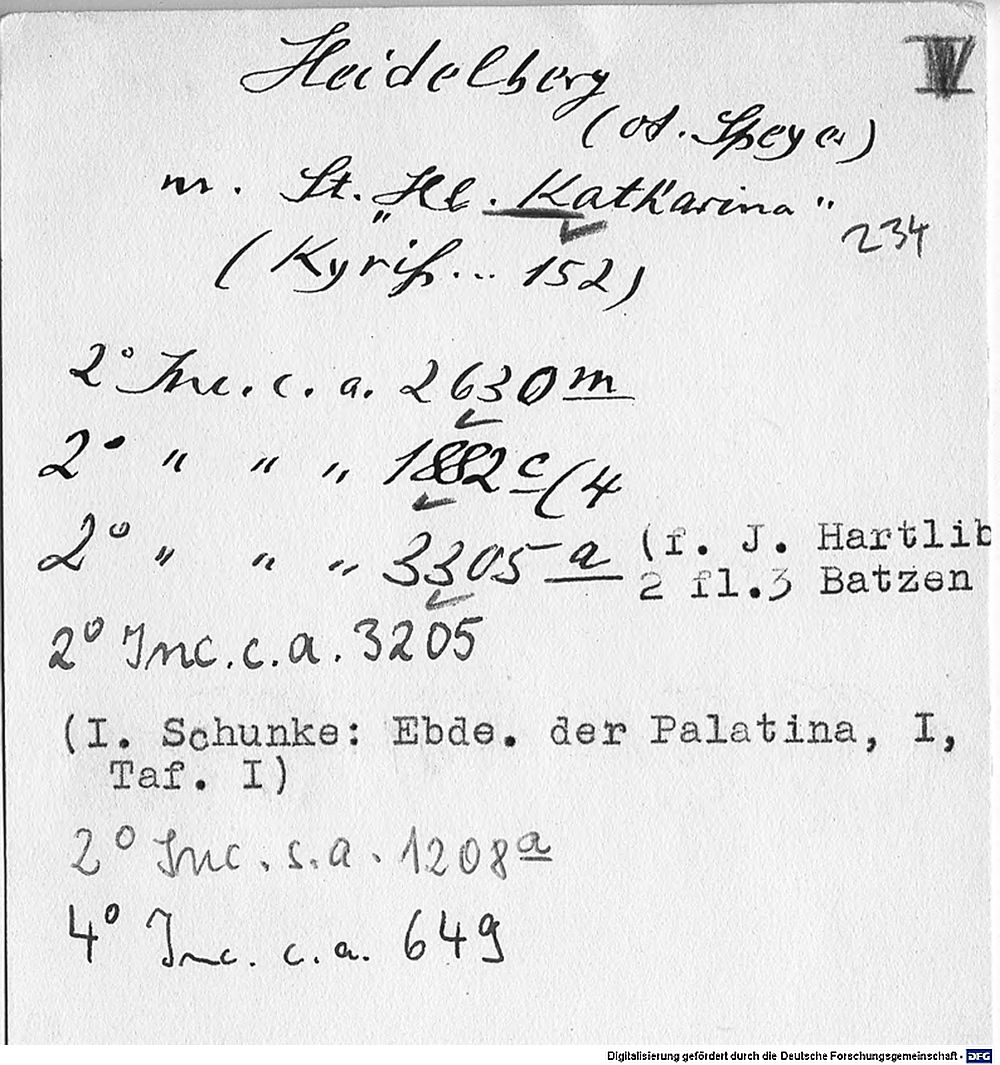 Heidelberg
IV
(od. Speyer)
m. St. "Hl. Katharina"
234
(Kyriß... 152)
2° Inc. c. a. 2630 m
2° " " " 1882 c (4
2° " " " 3305 a (f. J. Hartlib
2 fl.3 Batzen
2° Inc. c. a. 3205
(I. Schunke: Ebde. der Palatina, I,
Taf. I)
2° Inc. s. a. 1208 a
4° Inc. c. a. 649
Digitalisierung gefördert durch die Deutsche Forschungsgemeinschaft - DFG